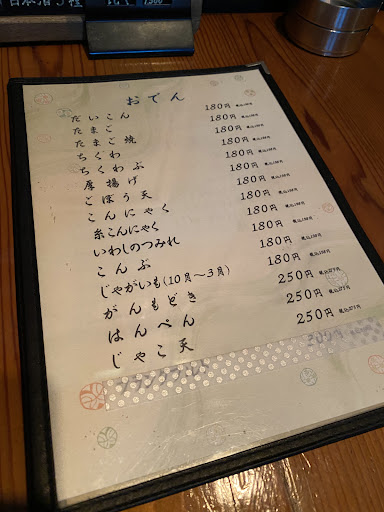 日本酒3種
おでん
だいこん 180円 税込198円
たまご 180円 税込198円
たまご焼 180円 税込198円
ちくわ 180円 税込198円
ちくわぶ 180円 税込198円
厚揚げ 180円 税込198円
ごぼう天 180円 税込198円
こんにゃく 180円 税込198円
糸こんにゃく 180円 税込198円
いわしのつみれ 180円 税込198円
こんぶ 180円 税込198円
じゃがいも(10月〜3月) 180円 税込198円
がんもどき 250円 税込275円
はんぺん 250円 税込275円
じゃこ天 250円 税込275円